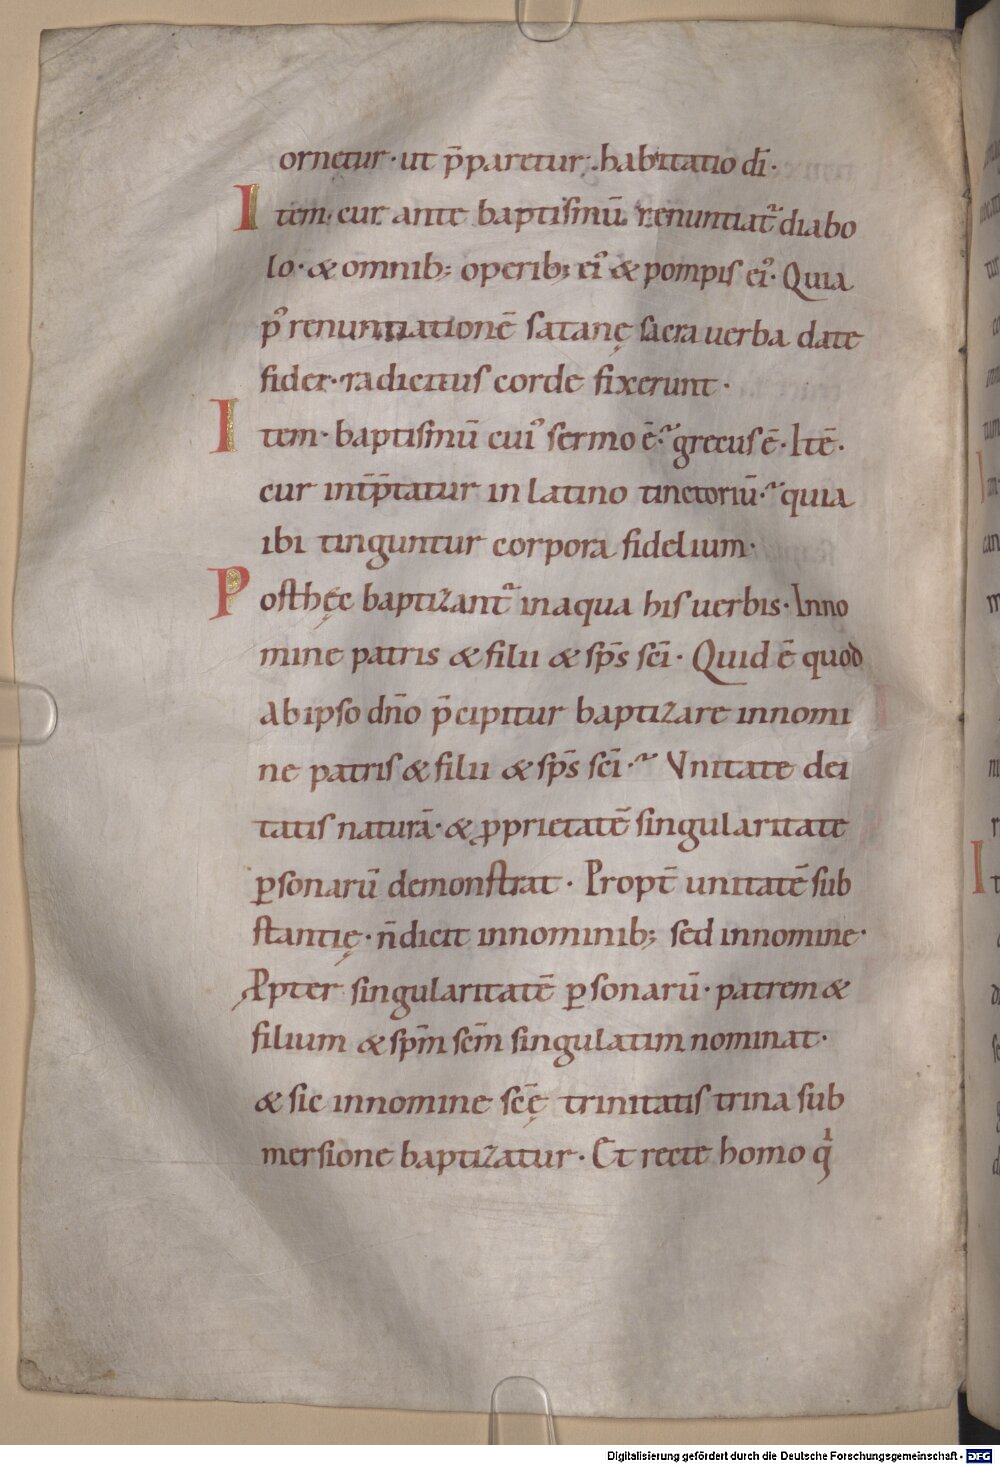 ornetur· ut p̄paretur; habitatio dī·
Item; cur ante baptismū renuntiat᷑ diabo
lo· & omnib; operib; ei᷒ & pompis ei᷒· Quia
p᷒ renuntiationē satanę sacra uerba date
fidei· radicitus corde fixerunt·
Item· baptismū cui᷒ sermo ē·᷑ grecus ē· Itē·
cur int̄p̄tatur in latino tinctoriū·᷑ quia
ibi tinguntur corpora fidelium·
Posthęc baptizant᷑ in aqua his uerbis· Inno
mine patris & filii & sp̄s sc̄i· Quid ē quod
ab ipso dn̄o p̄cipitur baptizare innomi
ne patris & filii & sp̄s sc̄i·᷑ Vnitate dei
tatis naturā· & ꝓprietatē singularitate
ꝑsonarū demonstrat· Propt̄ unitatē sub
stantię· n̄ dicit innominib; sed innomine·
Ꝓpter singularitatē ꝑsonarū· patrem &
filium & sp̄m sc̄m singulatim nominat·
& sic innomine sc̄ę trinitatis trina sub
mersione baptizatur· Et recte homo qͥ
Digitalisierung gefördert durch die Deutsche Forschungsgemeinschaft - DFG